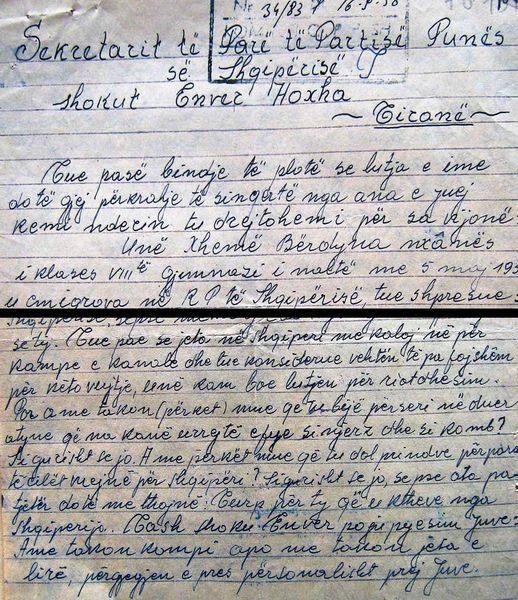 Nr 34/83 16-9-58
Sekretarit të Parë të Partisë Punës
së Shqipërisë
shokut Enver Hoxha
~ Tiranë ~
Tue pasë bindje të plotë se lutja e ime
do të gjej përkralje të singertë nga ana e juej
kemi nderin tu drejtohemi për sa vijonë
Unë Xhemë Bërdyna nxânës
i klases VIIItë gjimnazi i natë me 5 maj 195
u emigrova në R P të Shqipërisë, tue shpresue
se ty. Tue pae se jeta në Shqiperi me kaloj në për
kampe e kanale dhe tue konsiderue vehtën të pa fajshëm
për këto vujtje, unë kam bae lutjen për riatdhesim.
Por a me takon (përket) mue që të bijë përseri në duer
atyne që na kanë urrejtë edhe si njerz dhe si komb?
Sigurisht se jo. A me përket mue që të dal mindve përpara
të cilët mejnë për Shqipëri? Sigurisht se jo, se pse ata pa
tjetër do të me thojnë: Turp për ty që u ktheve nga
Shqiperija. Tash shoku Enver po pi pyesim Juve:
A me takon kampi apo me takon jeta e
lirë, përgjegjen e pres përsonalisht prej Juve.